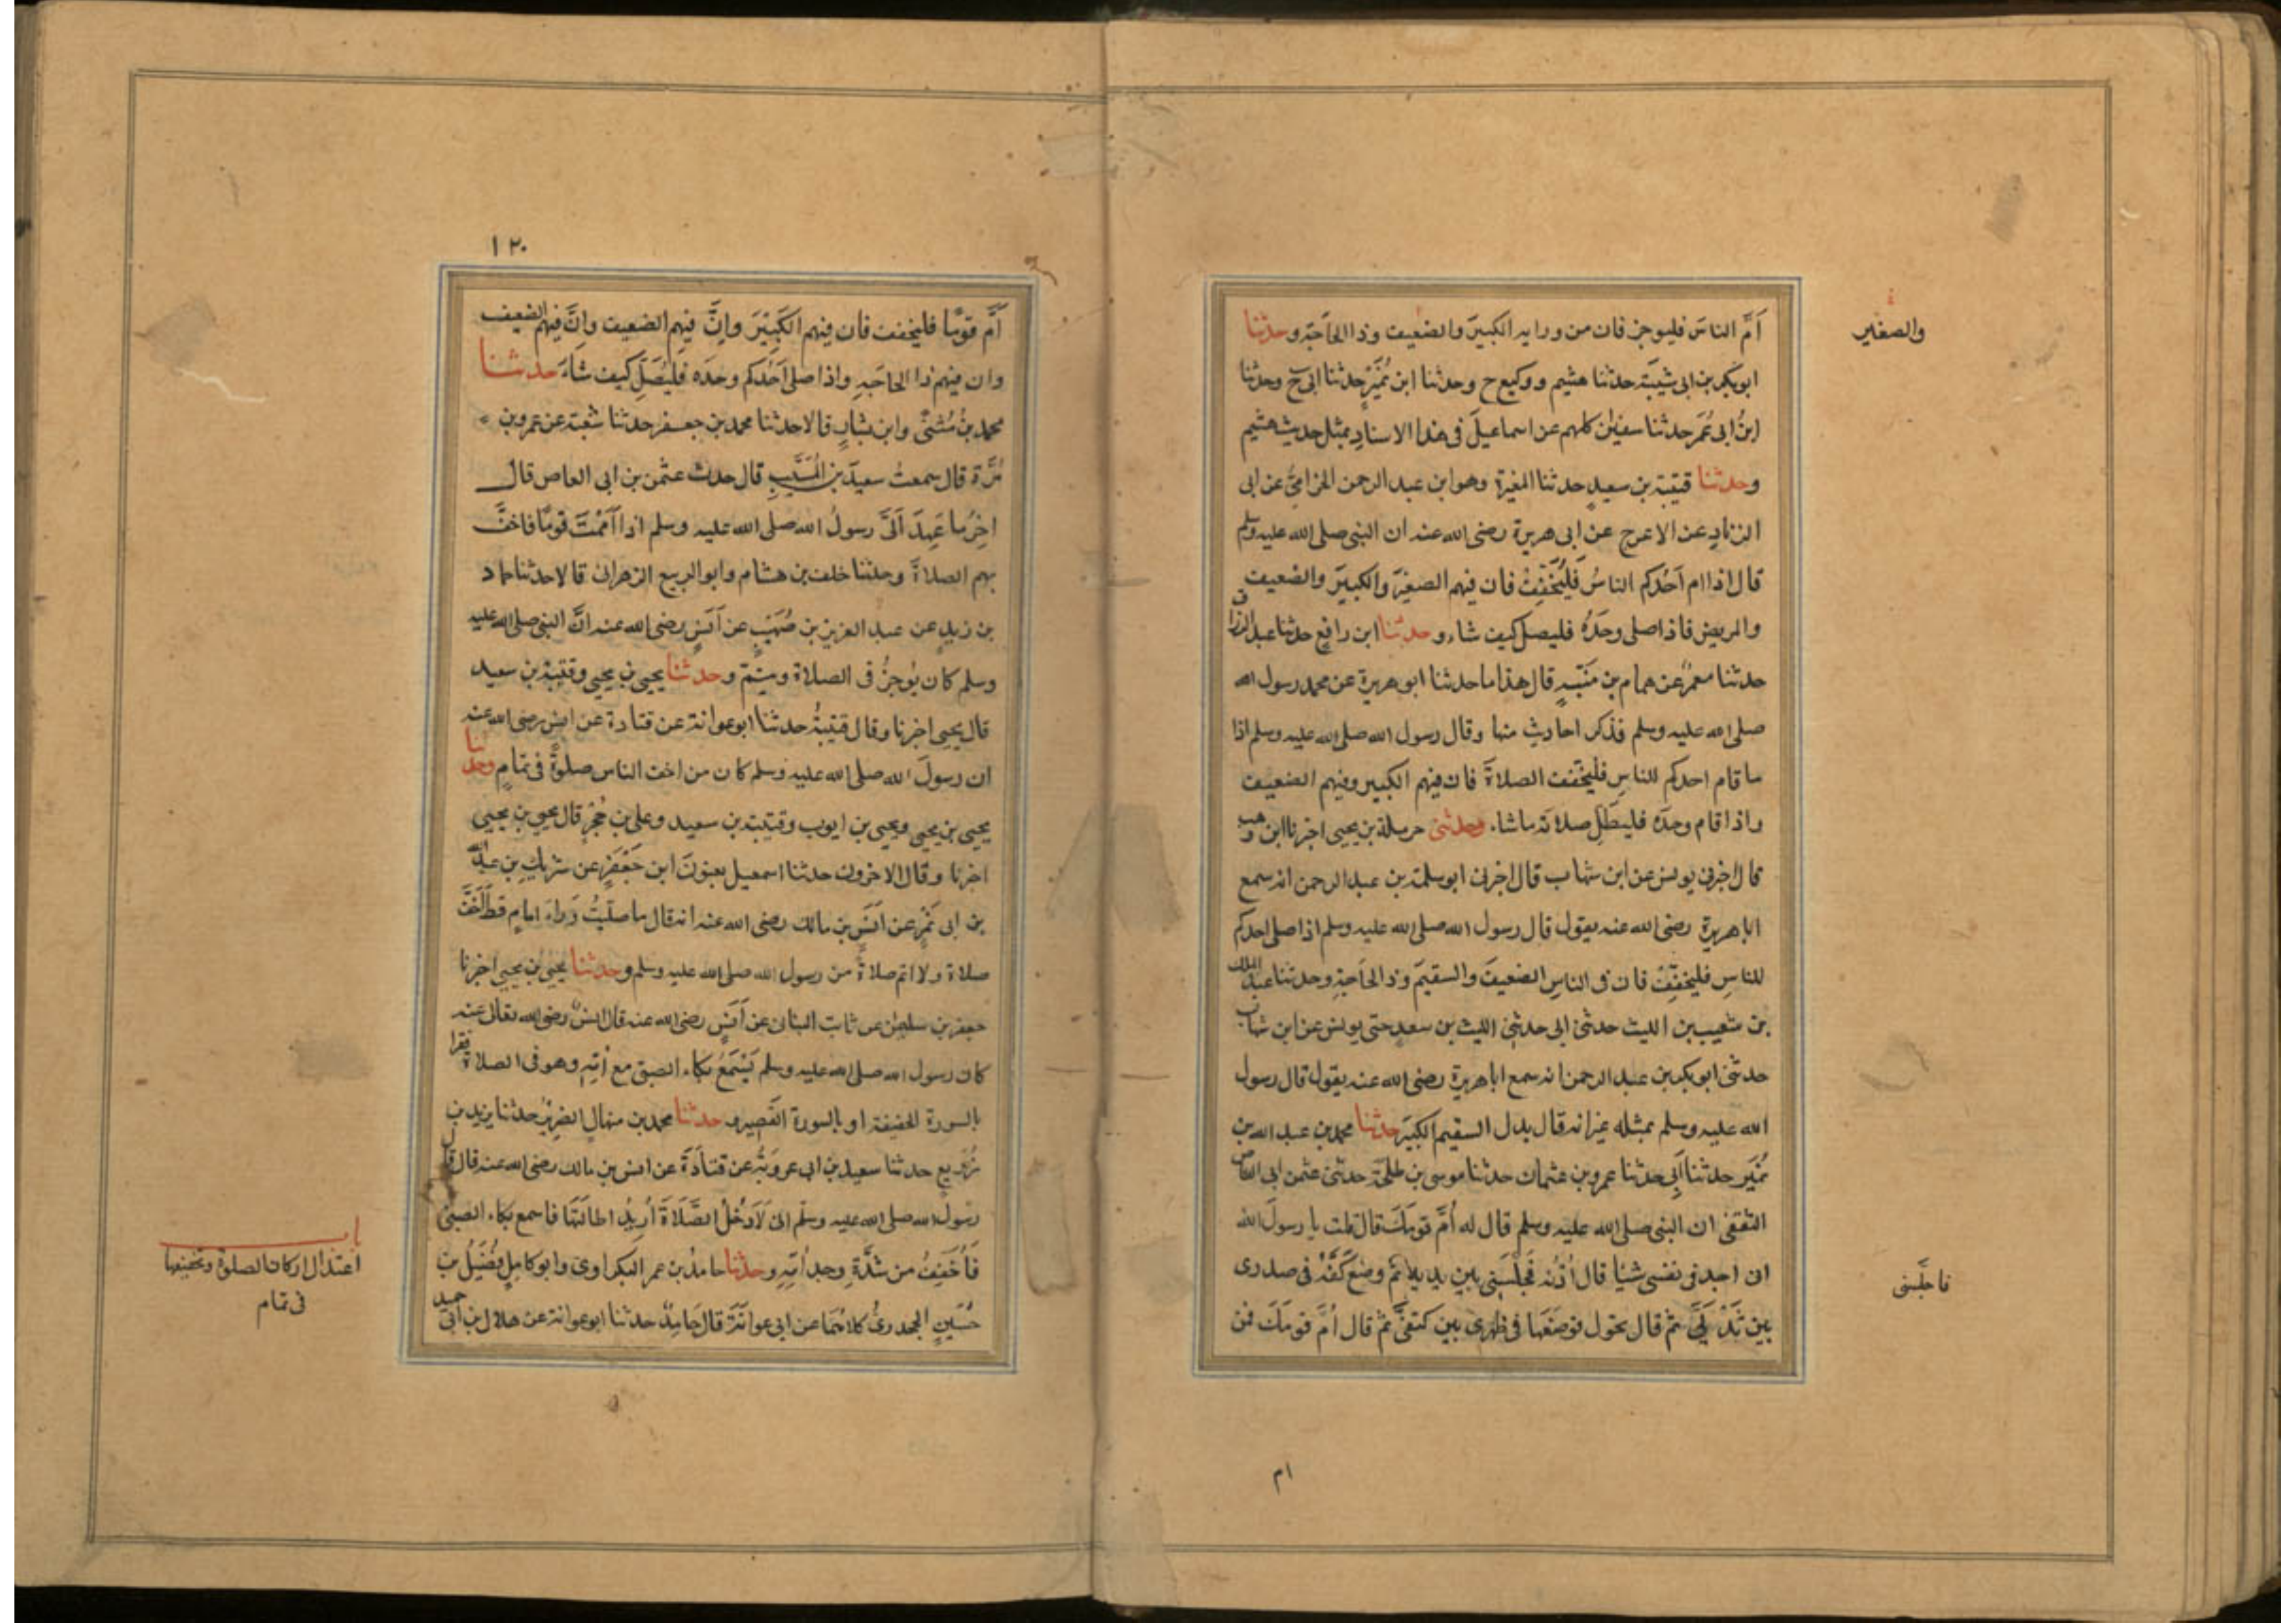 أمَّ الناسَ فليوجز فان من ورايه الكبيرَ والضعيف وذا الحاجة وحدثنا
والصغير
ابو بكر بن ابى شيبة حدثنا هشيم ووكيع ح وحدثنا ابن نُمَيْرٍ حدثنا ابى ح وحدثنا
ابنُ ابى عُمَر حدثنا سفيٰن كلهم عن اسماعيلَ فى هذا الاسنادِ بمثل حديث هشيم
وحدثنا قتيبة بن سعيدٍ حدثنا المغيرة وهو ابن عبد الرحمن الحزامىُّ عن ابى
الزنادِ عن الاعرج عن ابى هريرة رضى الله عنه ان النبى صلى الله عليه وسلم
قال اذا ام أحدُكم الناسُ فَلْيُخَفِّفْ فان فيهم الصغيَر والكبيَر والضعيف
والمريض فاذا صلى وحدَهُ فليصل كيف شاء وحدثنا ابن رافعٍ حدثنا عبد الرزاق
حدثنا معمرٌ عن همام بن مُنَبّهٍ قال هذا ما حدثنا ابو هريرة عن محمد رسول الله
صلى الله عليه وسلم فذكر احاديث منها وقال رسول الله صلى الله عليه وسلم اذا
ما قام احدكم للناسِ فليخفف الصلاةَ فان فيهم الكبير وفيهم الضعيف
واذا قام وحدَه فليُطِلْ صلاته ما شاء. وحدثنى حرملة بن يحيى اخبرنا ابن وهب
قال اخبرنى يونس عن ابن شهاب قال اخبرنى ابو سلمة بن عبد الرحمن انه سمع
ابا هريرة رضى الله عنه يقول قال رسول الله صلى الله عليه وسلم اذا صلى احدكم
للناسِ فليخفِّفْ فان فى الناسِ الضعيفَ والسقيمَ وذا الحاجةِ وحدثنا عبد الملك
بن شعيب بن الليث حدثنى ابى حدثنى الليث بن سعد حتى يونس عن ابن شهاب
حدثنى ابو بكر بن عبد الرحمن انه سمع ابا هريرة رضى الله عنه يقول قال رسول
الله عليه وسلم بمثله غير انه قال بدل السقيم الكبيَر حدثنا محمد بن عبد الله بن
نُمَير حدثنا أبى حدثنا عمرو بن عثمان حدثنا موسى بن طلحة حدثنى عثمٰن ابى العاص
الثقفى ان النبى صلى الله عليه وسلم قال له أُمَّ قومَكَ قال قلت يا رسولَ الله
انى اجد فى نفسى شيئا قال اُدْنُه فَجَلَّسَنى بين يديه ثم وضع كَفَّهُ فى صدرى
فاجلَسنى
بين ثَدْيَىَّ ثم قال تحول فوضعَها فى ظهرى بين كتفىَّ ثم قال أُمَّ قومَكَ فمن
ام
١٢٠
أمَّ قومًا فليخفف فان فيهم الكبيْرَ وانَّ فيهم الضعيف وانَّ فيهم الضعيف
وان فيهم ذا الحاجَةِ واذا صلى أحدُكم وحدَه فليُصَلِّ كيف شاءَ حدثنا
محمد بنُ مُثنىً وابن بشارٍ قالا حدثنا محمد بن جعفر حدثنا شعبة عن عمرو بن
مُرَّة قال سمعتُ سعيدَ بن المُسَيَّبِ قال حدث عثمٰن بن ابى العاص قال
اخِرُ ما عَهِدَ اَلَىَّ رسولُ الله صلى الله عليه وسلم اذا أمَمْتَ قومًا فاخفَّ
بهم الصلاةَ وحدثنا خلف بن هشام وابو الربيع الزهرانى قالا حدثنا حماد
بن زيدٍ عن عبد العزيز بن صُهَيْبٍ عن أنسٍ رضى الله عنه انَّ النبى صلى الله عليه
وسلم كان يُوجزُ فى الصلاة ويتمّ وحدثنا يحيى بن يحيى وقتيبة بن سعيد
قال يحيى اخبرنا وقال قتيبةُ حدثنا ابو عوانة عن قتادة عن انس رضى الله عنه
ان رسولَ الله صلى الله عليه وسلم كان من اخف الناس صلوةً فى تمامٍ وحدثنا
يحيى بن يحيى ويحيى بن ايوب وقتيبة بن سعيد وعلى بن حُجْرٍ قال يحيى بن يحيى
اخبرنا وقال الاخرون حدثنا اسمعيل يعنونَ ابن جَعْفَرٍ عن شريكِ بن عبد الله
بن ابى نَمِرٍ عن أنَسِ بن مالك رضى الله عنه انه قال ما صليتُ وَراء امامٍ قط أخَفَّ
صلاة ولا اتم صلاةً من رسول الله صلى الله عليه وسلم وحدثنا يحيىَ بن يحيى اخبرنا
جعفر بن سليمٰن عن ثابت البنانى عن أنسٍ رضى الله عنه قال انسٌ رضى الله تعالى عنه
كان رسول الله صلى الله عليه وسلم يَسْمَعُ بكاء الصبى مع أمّهِ وهو فى الصلاة فيقرا
بالسورة الخفيفة او بالسورة القصيره حدثنا محمد بن منهالٍ الضريرُ حدثنا يزيد بن
زُرَيعٍ حدثنا سعيد بن ابى عروبَةُ عن قتادَةَ عن انس بن مالك رضى الله عنه قال قال
رسول الله صلى الله عليه وسلّم انى لَادخُلُ الصَّلَاةَ أُريدُ اطالَتَها فاسمع بكاء الصبى
فَأُخَفِفُ من شدَّةِ وجد أمّهِ وحدثنا حامدُ بن عمر البكراوى وابو كاملٍ فُضَيْلُ بن
حُسَينٍ الجحدرىُّ كلاهُمَا عن ابى عوانَةَ قال حَامِدٌ حدثنا ابو عوانة عن هلال بن ابى حميد
باب
اعتدال اركان الصلوة وتخفيفها
فى تمام